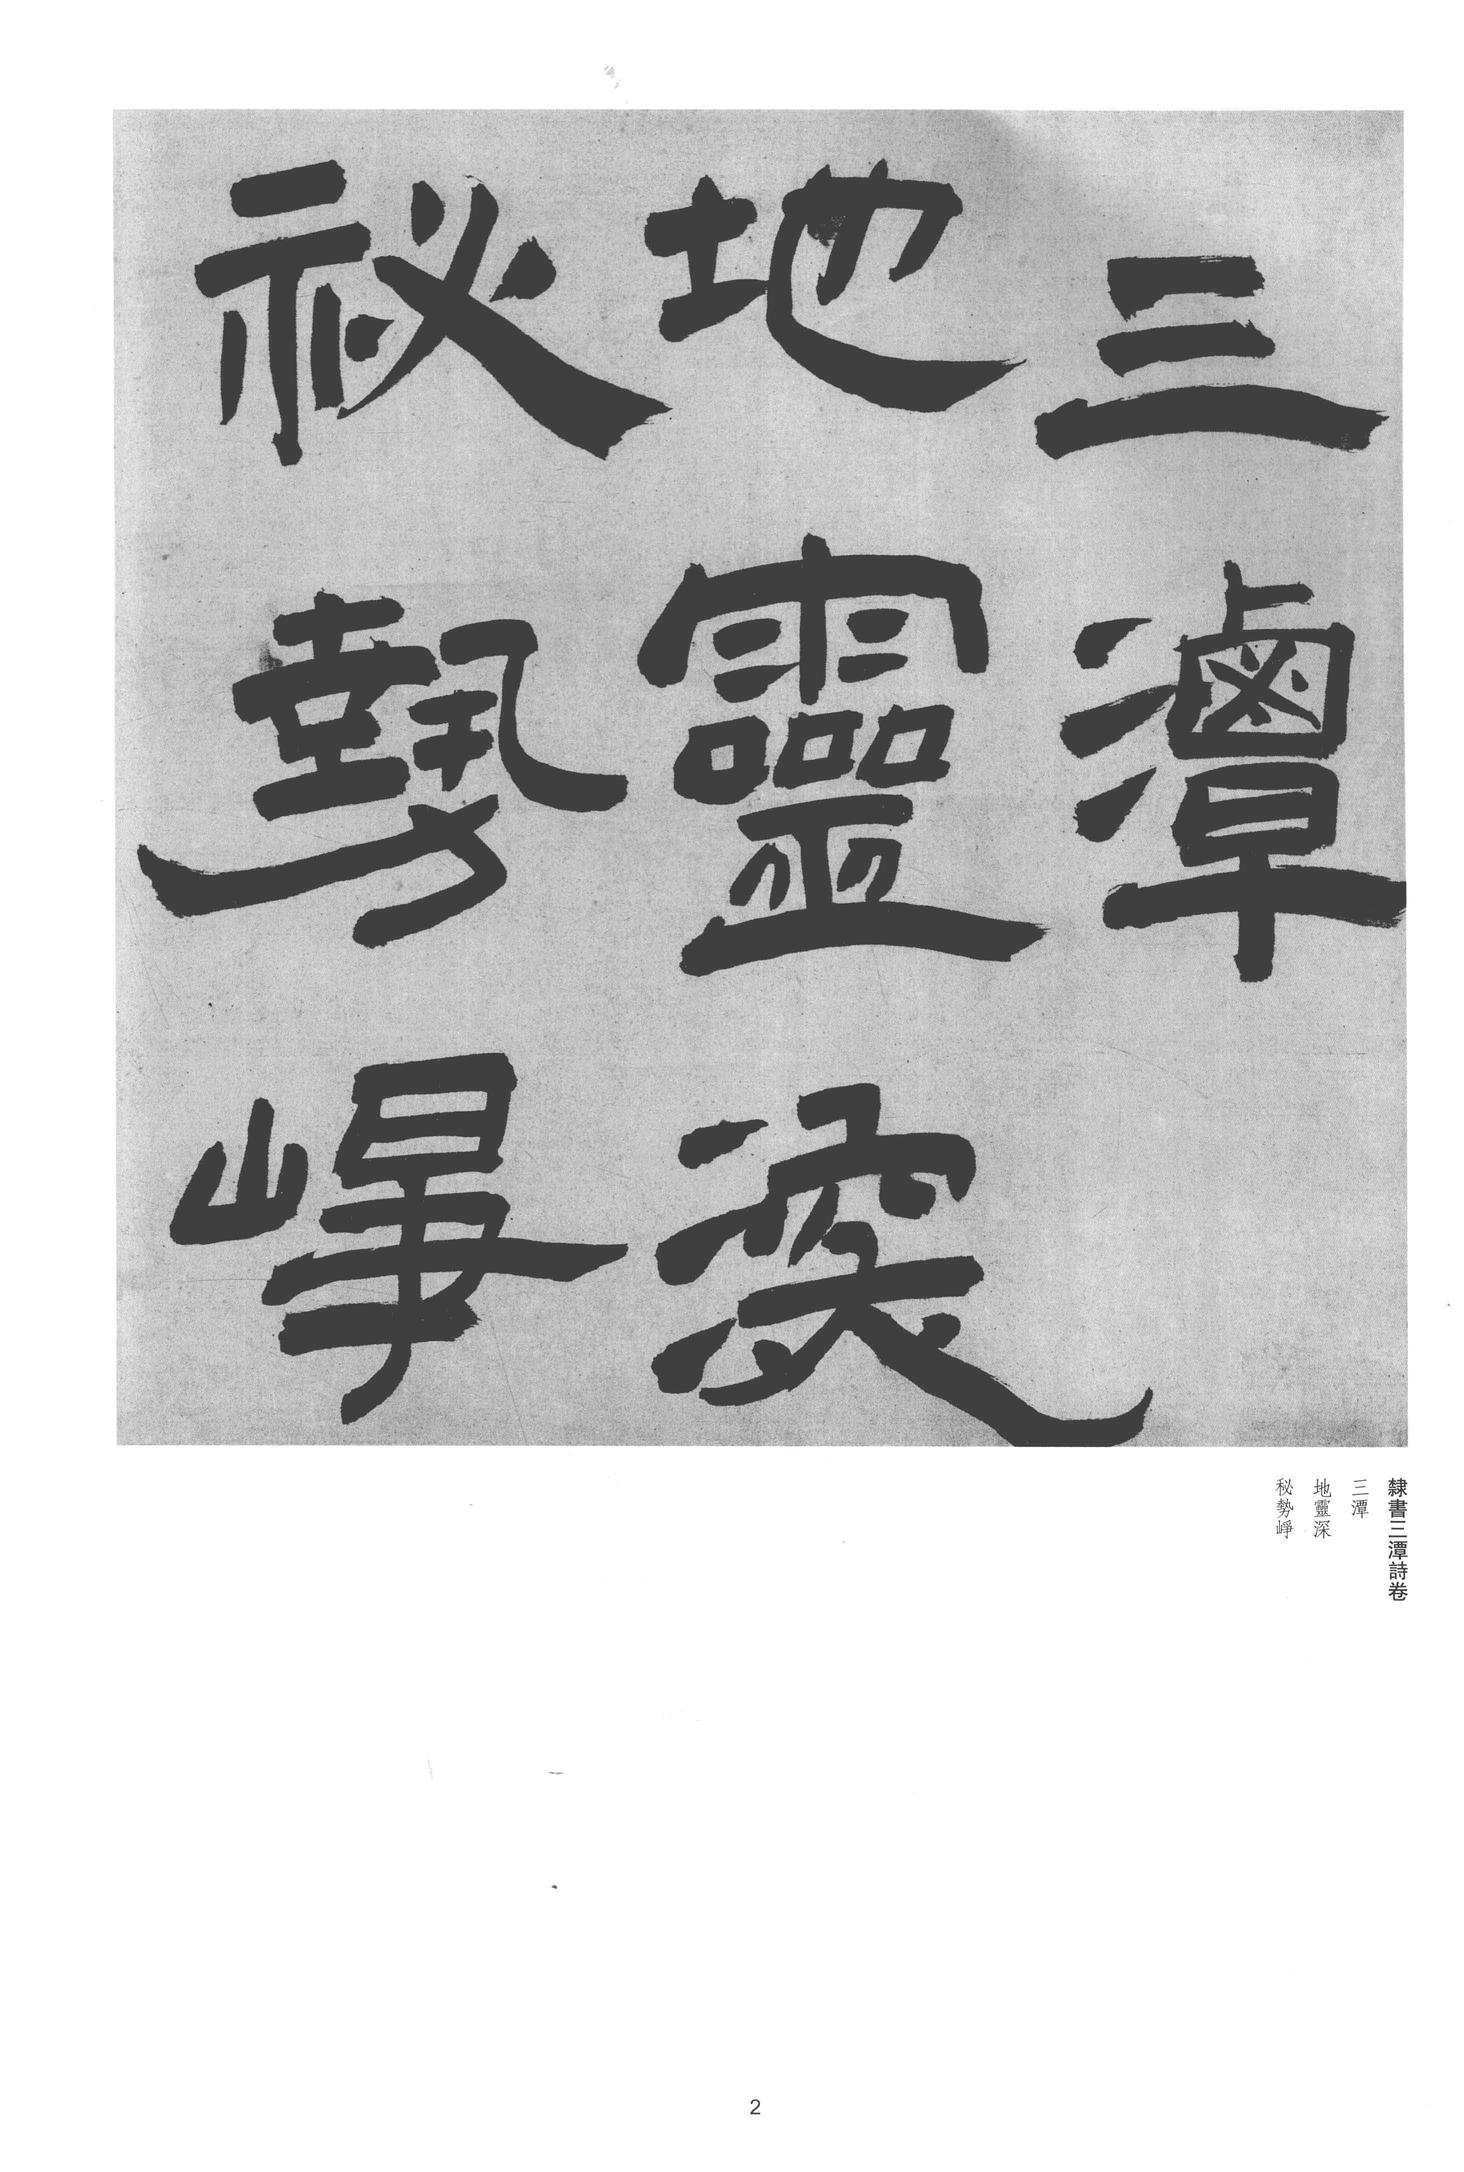 三潭
地靈深
祕勢崢
隸書三潭詩卷
三潭
地靈深
秘勢崢
2